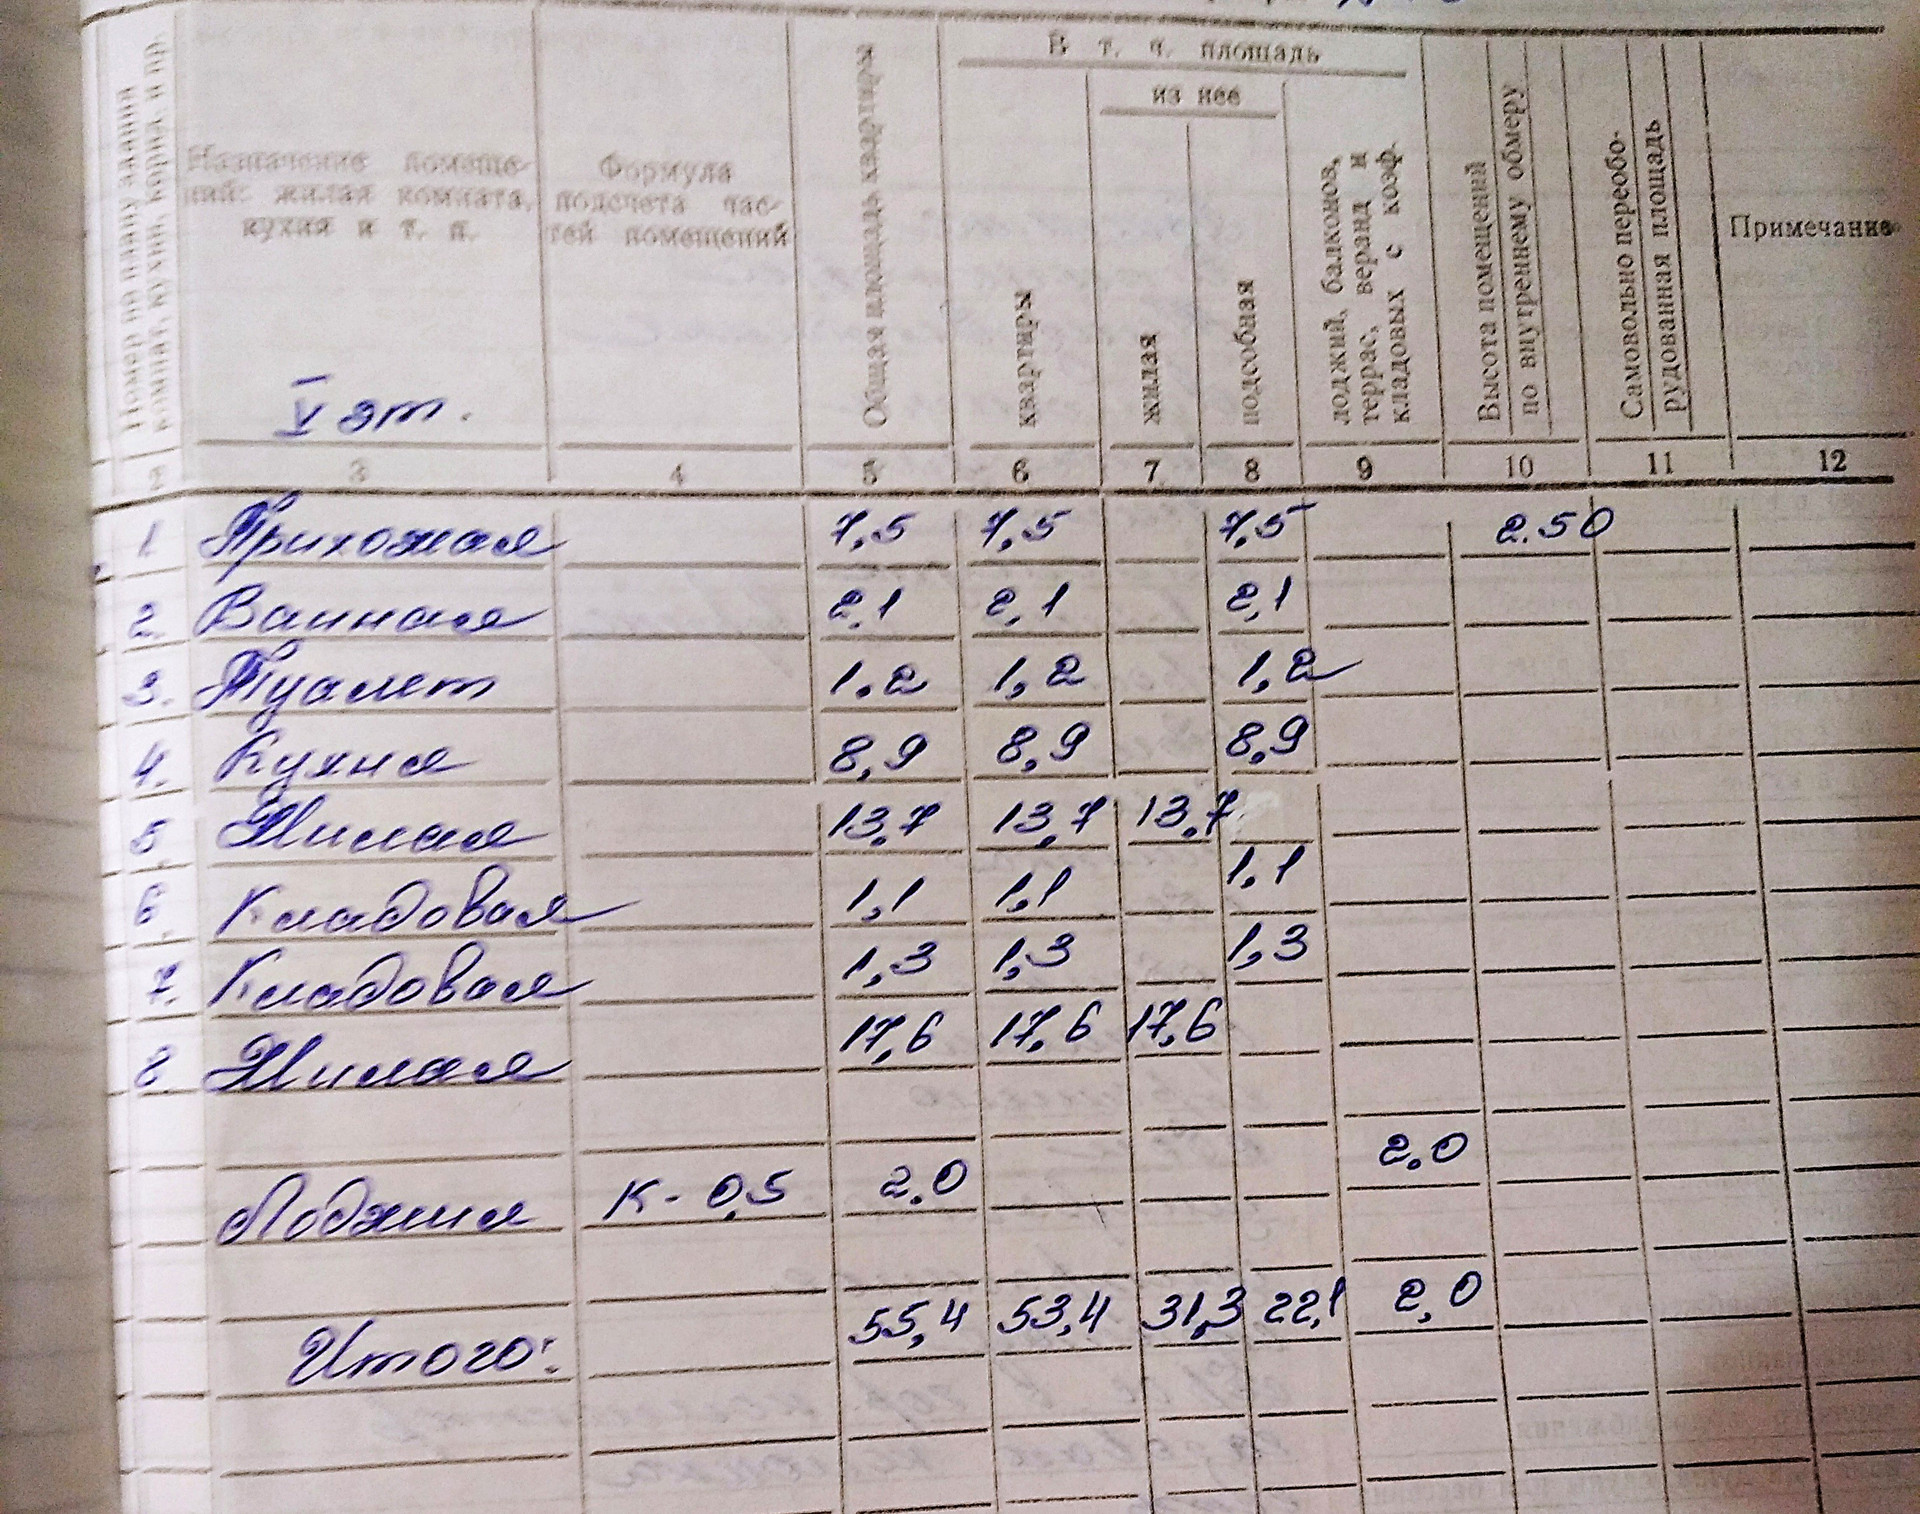 В т. ч. площадь
из нее
Номер по плану здания
комнаты, кухни, корид. и пр.
Назначение помеще-
ний: жилая комната,
кухня и т. п.
Формула
подсчета час-
тей помещений
Общая площадь квартиры
квартиры
жилая
подсобная
лоджий, балконов,
террас, веранд и
кладовых с коэф.
Высота помещений
по внутреннему обмеру
Самовольно переобо-
рудованная площадь
Примечание
V эт.
2 3 4 5 6 7 8 9 10 11 12
1. Прихожая 7,5 7,5 7,5 2.50
2. Ванная 2,1 2,1 2,1
3. Туалет 1.2 1,2 1,2
4. Кухня 8,9 8,9 8,9
5. Жилая 13,7 13,7 13,7
6. Кладовая 1,1 1,1 1,1
7. Кладовая 1,3 1,3 1,3
8. Жилая 17,6 17,6 17,6
Лоджия К- 0,5 2.0 2.0
Итого: 55,4 53,4 31,3 22,1 2,0